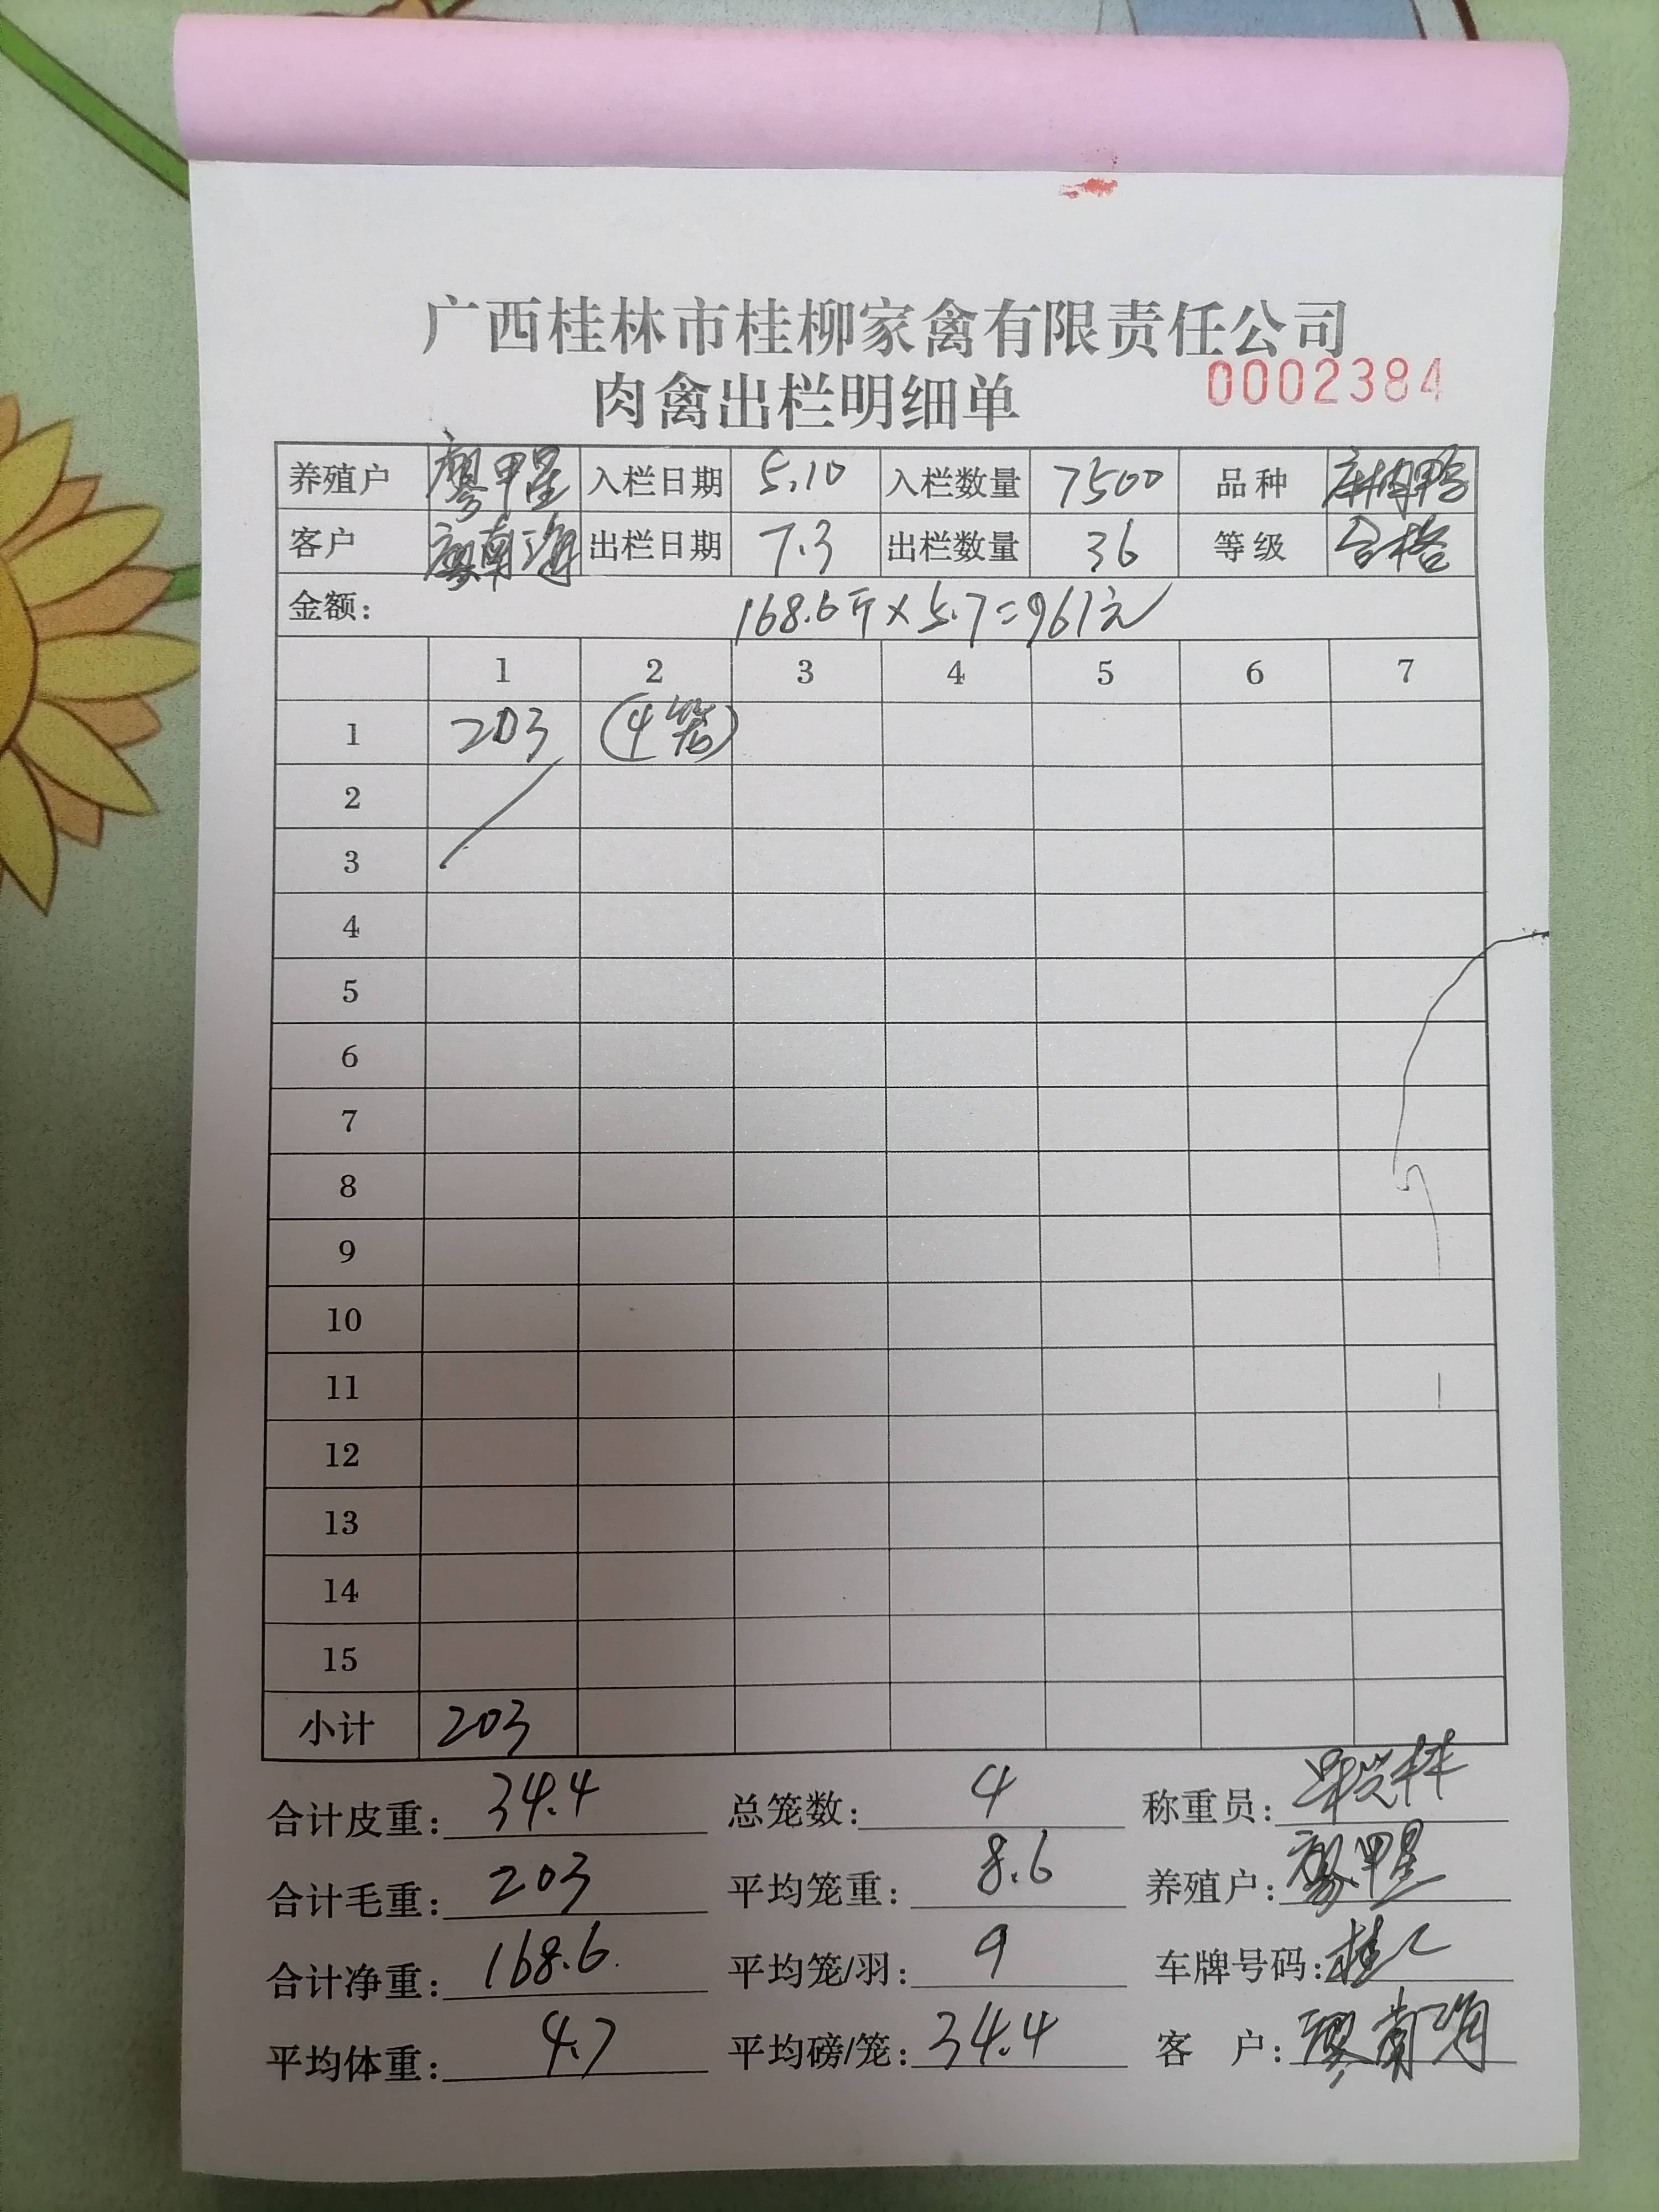 广西桂林市桂柳家禽有限责任公司
肉禽出栏明细单 0002384
养殖户 廖甲星 入栏日期 5.10 入栏数量 7500 品种
客户 廖南海 出栏日期 7.3 出栏数量 36 等级 合格
金额: 168.6斤×5.7=961元
1 2 3 4 5 6 7
1 203 (4笼)
2
3
4
5
6
7
8
9
10
11
12
13
14
15
小计 203
合计皮重: 34.4 总笼数: 4 称重员:
合计毛重: 203 平均笼重: 8.6 养殖户: 廖甲星
合计净重: 168.6 平均笼/羽: 9 车牌号码: 桂C
平均体重: 4.7 平均磅/笼: 34.4 客户: 廖南海